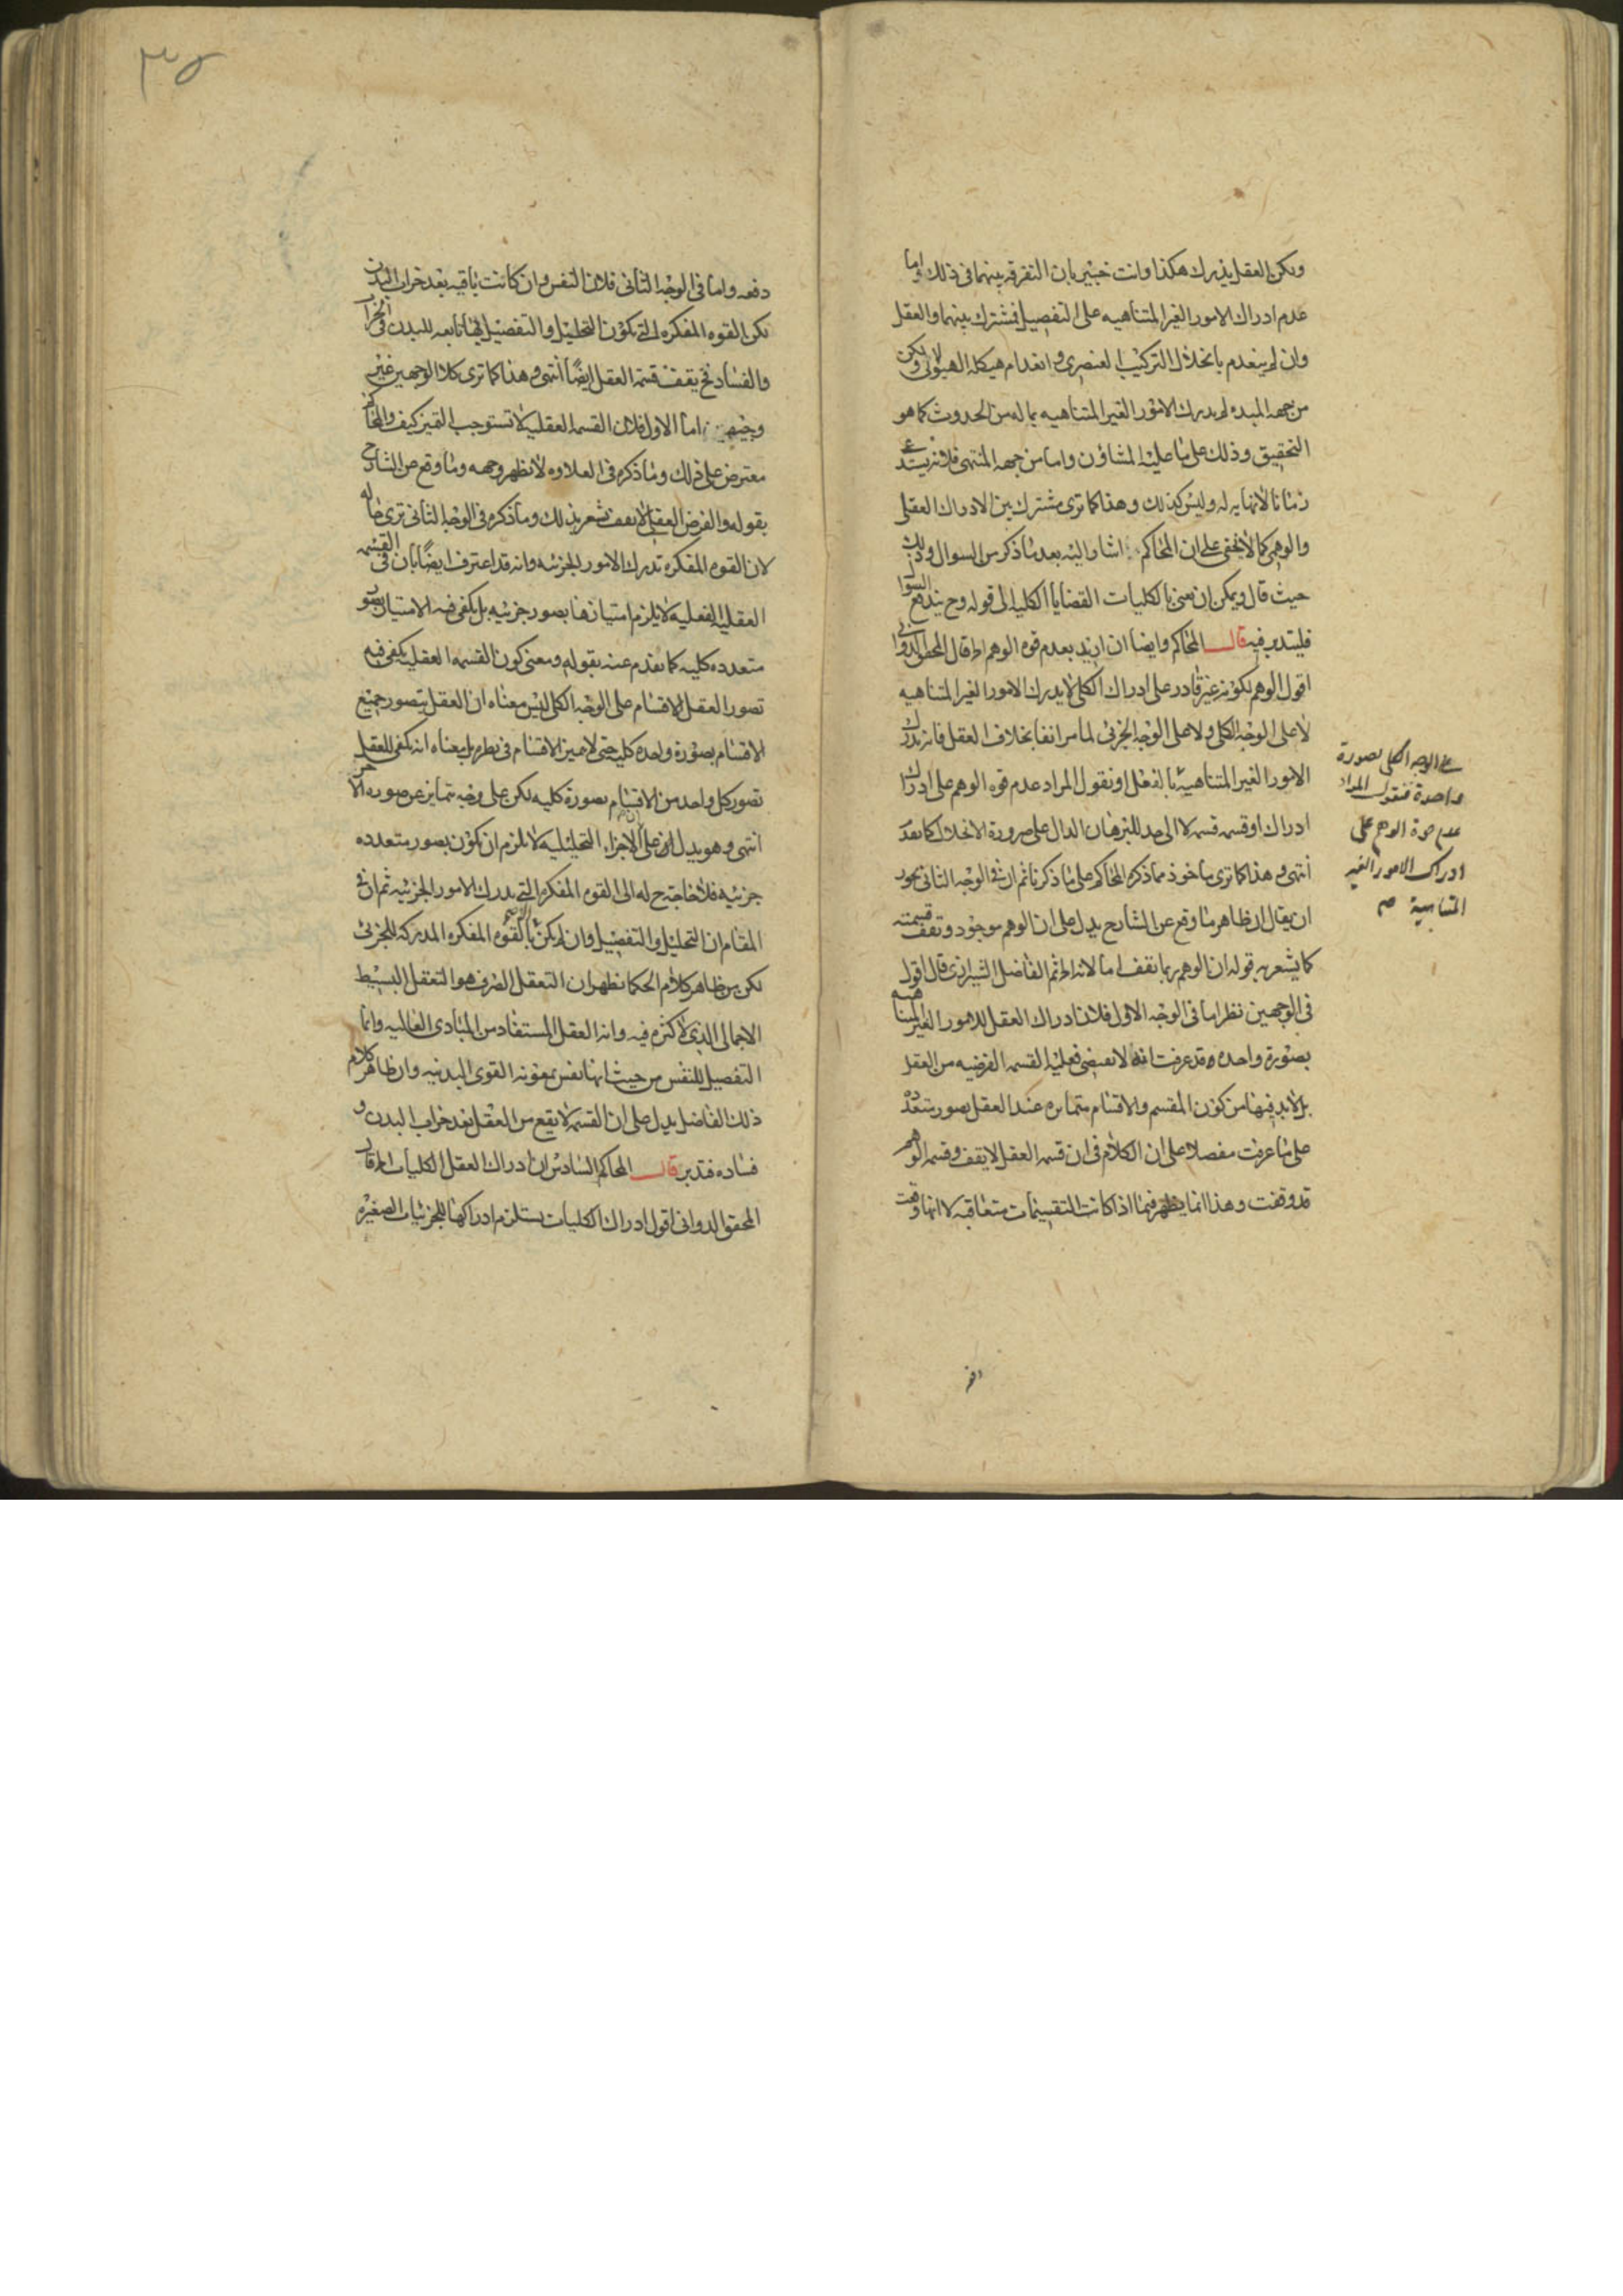 ولكن العقل يدرك هكذا وانت خبير بان التفرقه بينهما فى ذلك واما
عدم ادراك الامور الغير المتناهيه على التفصيل فمشترك بينهما والعقل
وان لم ينعدم بانحلال التركيب العنصرى وانعدام هيكله الهيولانى ولكن
من جهه المبدء لم يدرك الامور الغير المتناهيه بما له من الحدوث كما هو
التحقيق وذلك على ما عليه المشاؤن واما من جهه المنتهى فلانه يستدعى
زمانا لا نهايه له وليس كذلك وهذا كما ترى مشترك بين الادراك العقلى
والوهمى كما لا يخفى على ان المحاكم اشار اليه بعد ما ذكر من السوال وذلك
حيث قال ويمكن ان نعنى بالكليات القضايا الكليه الى قوله وح يندفع السوال
فليتدبر فيه قال المحاكم وايضا ان اريد بعدم قوه الوهم اه قال المحقق الدوانى
اقول الوهم لكونه غير قادر على ادراك الكلى لا يدرك الامور الغير المتناهيه
لا على الوجه الكلى ولا على الوجه الجزئى لما مر انفا بخلاف العقل فانه يدرك
الامور الغير المتناهيه بالفعل او نقول المراد عدم قوه الوهم على ادراك
ادراك او قسمه قسمه لا الى حد للبرهان الدال على ضرورة الانحلال كما تقدم
انتهى وهذا كما ترى ماخوذ مما ذكره المحاكم على ما ذكرنا ثم ان فى الوجه الثانى يجوز
ان يقال ان ظاهر ما وقع عن الشارح يدل على ان الوهم موجود وتقف قسمته
كما يشعر به قوله ان الوهم ربما يقف اما لانه اه ثم الفاضل الشيرازى قال اقول
فى الوجهين نظر اما فى الوجه الاول فلان ادراك العقل للامور الغير المتناهيه
بصورة واحده وقد عرفت انه لا تقتضى فعليه القسمه الفرضيه من العقل
بل لابد فيها من كون المقسم والاقسام متمايزه عند العقل بصور متعدده
على ما عرفت مفصلا على ان الكلام فى ان قسمه العقل لا يقف وقسمه الوهم
قد وقفت وهذا انما يظهر فيما اذا كانت التقسيمات متعاقبه لا انها وقعت
على الوجه الكلى بصورة
واحدة فنقول المراد
عدم قوة الوهم على
ادراك الامور الغير
المتناهية صح
دفعه
٣٥
دفعه واما فى الوجه الثانى فلان النفس وان كانت باقيه بعد خراب البدن
لكن القوه المفكره التى تكون التحليل والتفصيل بها تابعه للبدن فى الخراب
والفساد فح يقف قسمه العقل ايضًا انتهى وهذا كما ترى كلا الوجهين غير
وجيهين اما الاول فلان القسمه العقليه لا تستوجب التميز كيف والمحاكم
معترض على ذلك وما ذكره فى العلاوه لا يظهر وجهه وما وقع من الشارح
بقوله والفرض العقلى لا يقف يشعر بذلك وما ذكره فى الوجه الثانى ترى حاله
لان القوه المفكره تدرك الامور الجزئيه وانه قد اعترف ايضًا بان فى القسمه
العقليه الفعليه لا يلزم امتيازها بصور جزئيه بل يكفى فيه الامتياز بصور
متعدده كليه كما تقدم عنه بقوله ومعنى كون القسمه العقليه يكفى فيه
تصور العقل الاقسام على الوجه الكلى ليس معناه ان العقل يتصور جميع
الاقسام بصورة واحده كليه حتى لا يميز الاقسام فى نظره بل معناه انه يكفى للعقل
تصور كل واحد من الاقسام بصورة كليه لكن على وجه يتمايز عن صوره الاخر
انتهى وهو يدل على ان الاجزاء التحليليه لا يلزم ان يكون بصور متعدده
جزئيه فلا حاجة ح له الى القوه المفكره التى يدرك الامور الجزئيه ثم ان فى
المقام ان التحليل والتفصيل وان لم يكن بالقوه المفكره المدركه للجزئى
لكن من ظاهر كلام الحكما يظهر ان التعقل الصرف هو التعقل البسيط
الاجمالى الذى لا كثره فيه وانه العقل المستفاد من المبادى العاليه وانما
التفصيل للنفس من حيث انها نفس بمعونه القوى البدنيه وان ظاهر كلام
ذلك الفاضل يدل على ان القسمه لا يقع من العقل بعد خراب البدن و
فساده فتدبر قال المحاكم السادس ان ادراك العقل الكليات اه قال
المحقق الدوانى اقول ادراك الكليات يستلزم ادراكها للجزئيات الصغيره